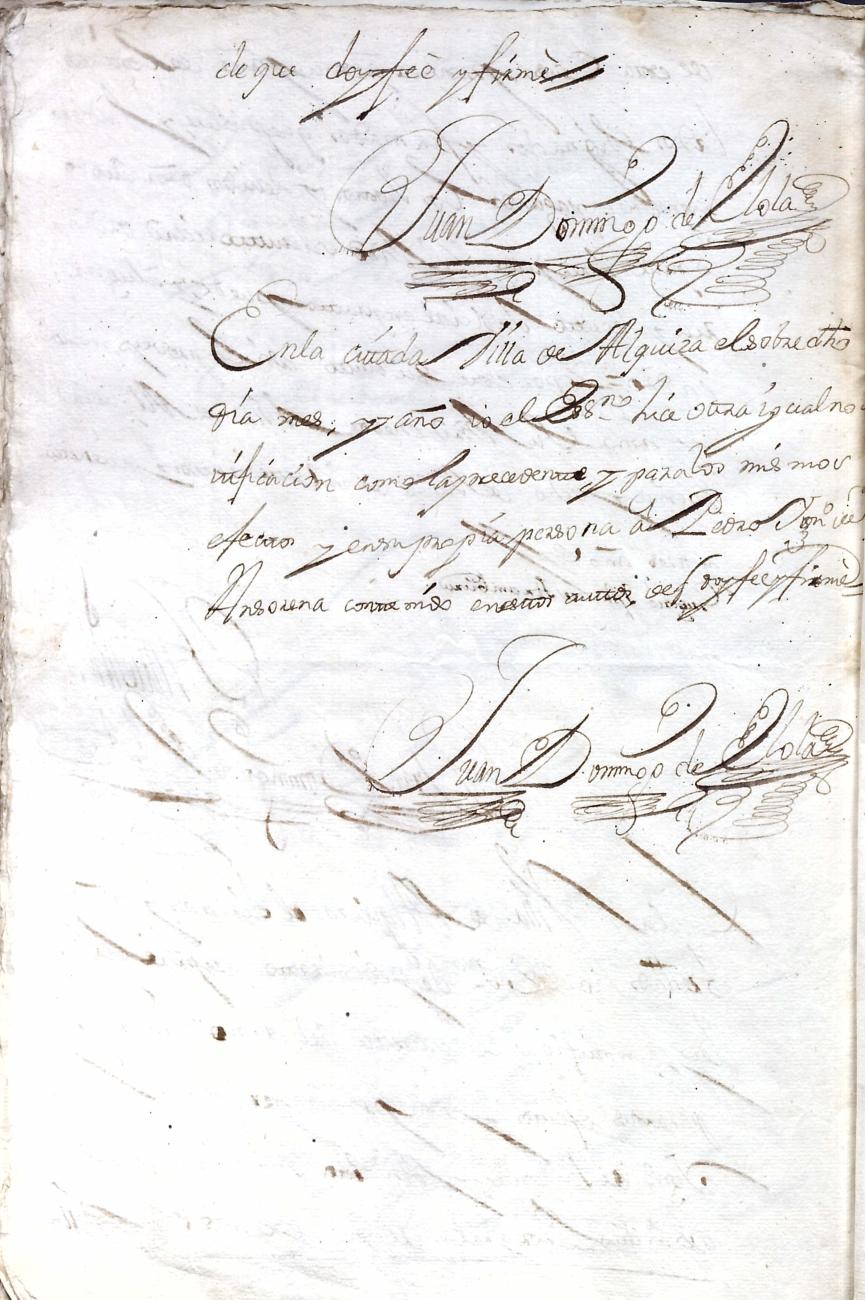 de que doy feè y firmè
Juan Domingo de Elola
En la citada Villa de Alquiza el sobre dho
dia mes, y año io el Essno hice otra igual no
tificacion como la precedente, y para los mismos
efectos y en su propia persona à Pedro Anto de
Ansorena contenido en estos autos, de q doy feè y firmè
Juan Domingo de Elola